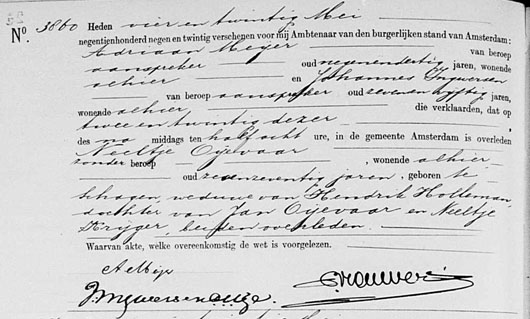 No. 3860 Heden vier en twintig Mei
negentienhonderd negen en twintig verschenen voor mij Ambtenaar van den burgerlijken stand van Amsterdam:
Adriaan Meyer van beroep
aanspreker oud negenendertig jaren, wonende
alhier en Johannes Ingwersen
van beroep aanspreker oud zevenenvijftig jaren,
wonende alhier die verklaarden, dat op
twee en twintig dezer
des na middags ten half acht ure, in de gemeente Amsterdam is overleden
Neeltje Oijevaar
zonder beroep, wonende alhier
oud zeventig jaren, geboren te
Schagen, weduwe van Hendrik Holleman,
dochter van Jan Oijevaar en Neeltje
Kryger, beiden overleden.
Waarvan akte, welke overeenkomstig de wet is voorgelezen.
A Meijer
J Ingwersen